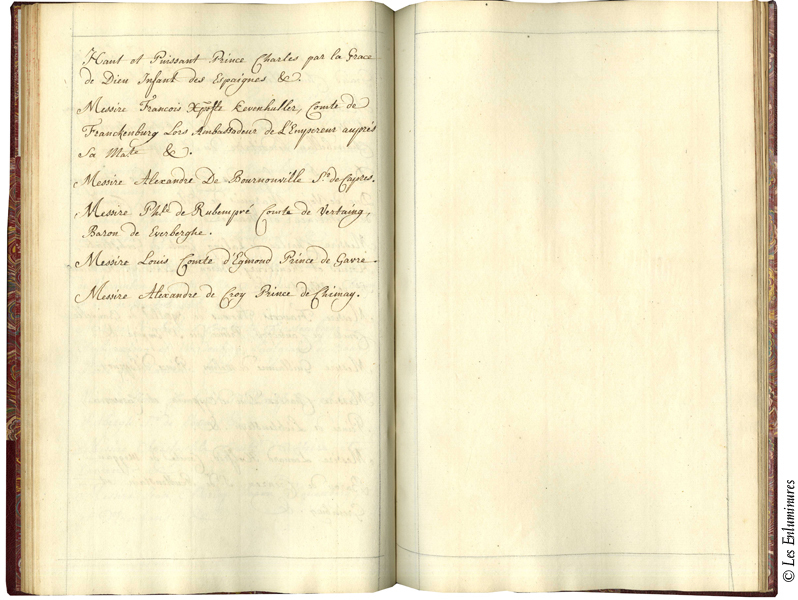 Haut et Puissant Prince Charles par la Grace
de Dieu Infant des Espaignes &.
Messire François Xpofle Kevenhuller, Comte de
Franckenburg Lors Ambassadeur de L'Empereur auprès
Sa Mate. &.
Messire Alexandre De Bournonville Sr. de Capres.
Messire Phle de Rubempré Comte de Vertaing,
Baron de Everberghe.
Messire Louis Comte d'Egmond Prince de Gavre.
Messire Alexandre de Croy Prince de Chimay.
© Les Enluminures